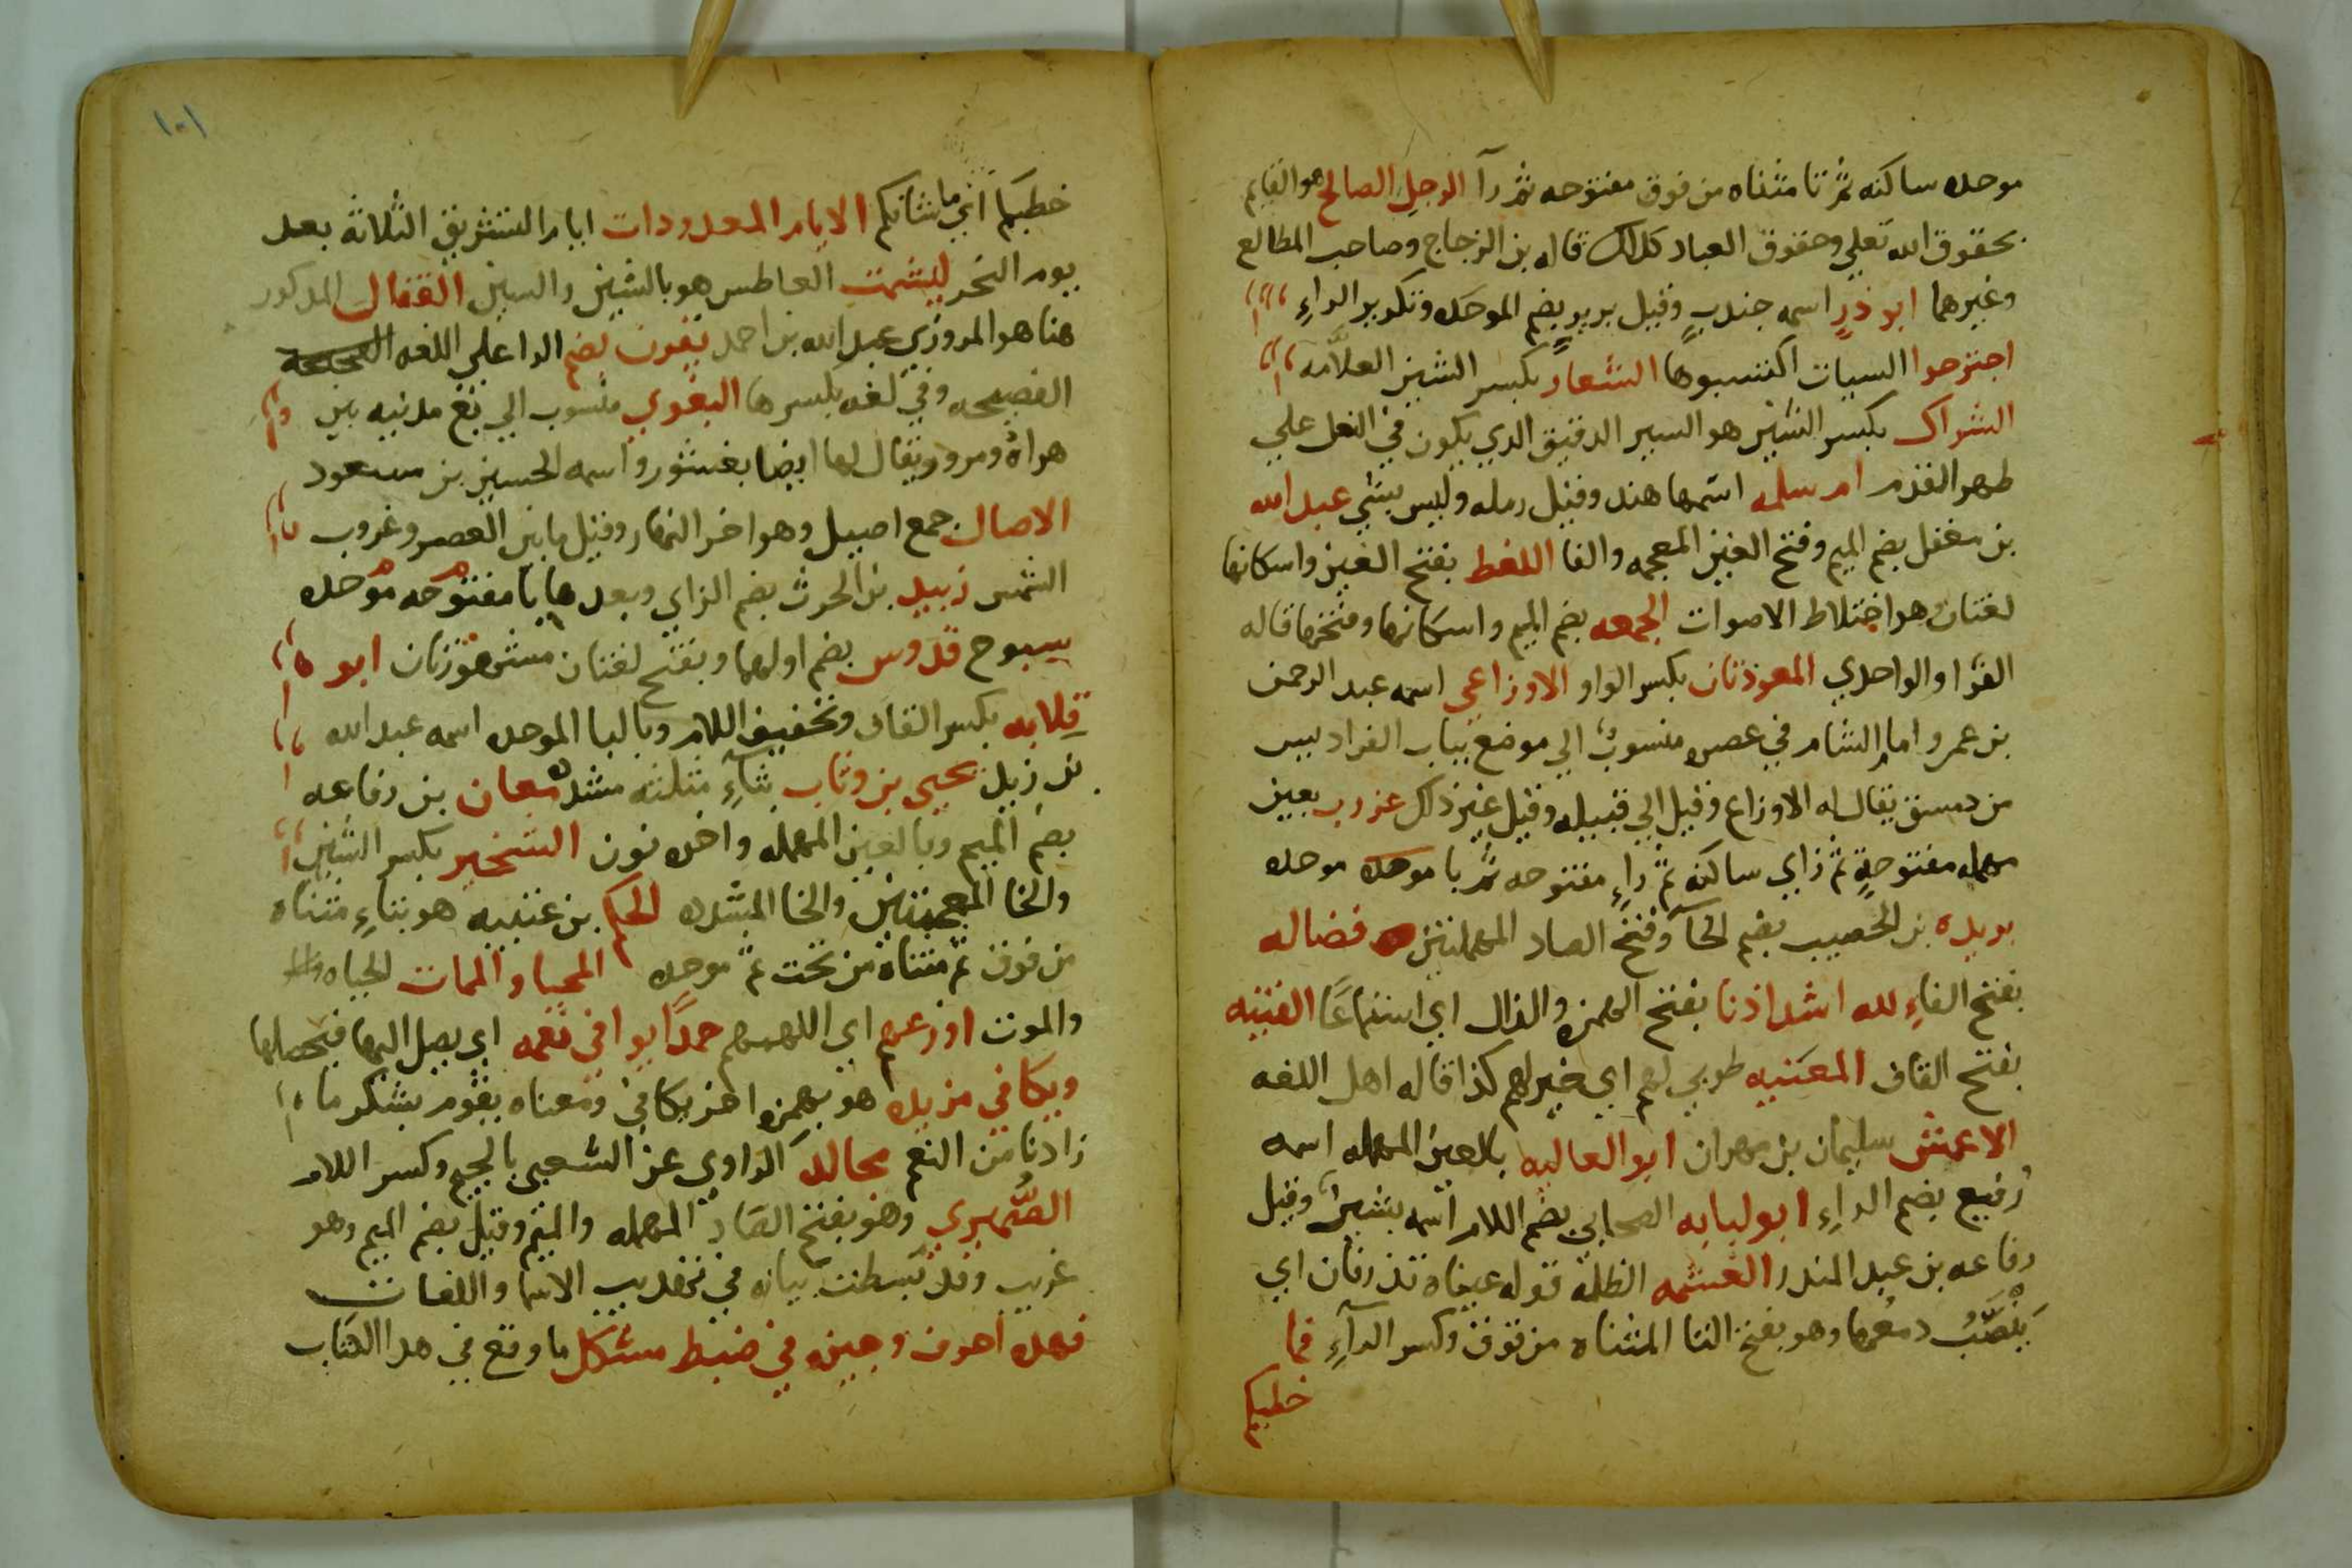 موحده ساكنه ثم تا مثناه من فوق مفتوحه ثم رآ الرجل الصالح هو القايم
بحقوق الله تعلي وحقوق العباد كذلك قاله بن الزجاج وصاحب المطالع
وغيرهما ابو ذرٍ اسمه جندبٍ وقيل بريرٍ بضم الموحده وتكرير الراءِ
اجترحوا السيات اكتسبوها الشعار بكسر الشين العلامه
الشراك بكسر الشين هو السير الدقيق الدي يكون في النعل علي
طهر القدم ام سلمه اسمها هند وقيل رمله وليس بشي عبد الله
بن مغفل بضم الميم وفتح الغين المعجمه والفا اللغط بفتح الغين واسكانها
لغتان وهو اختلاط الاصوات الجمعه بضم الميم واسكانها وفتحها قاله
الفرا والواحدي المعوذتان بكسر الواو الاوزاعي اسمه عبد الرحمن
بن عمرو امام الشام في عصره منسوب الي موضع بباب الفراديس
من دمشق يقال له الاوزاع وقيل الي قبيله وقيل غير ذلك عزرب بعين
مهمله مفتوحةٍ ثم زاي ساكنه ثم راءٍ مفتوحه ثم با موحده موحده
بريده بن الحصيب بضم الحآ وفتح الصاد المهملتين فضاله
بفتح الفاءِ لله اشد اذنا بفتح الهمزه والذال اي استماعًا القينه
بفتح القاف المغنيه طوبي لهم اي خير لهم كذا قاله اهل اللغه
الاعمش سليمان بن مهران ابو العاليه بالعين المهمله اسمه
رُفيع بضم الراءِ ابو لبابه الصحابي بضم اللام اسمه بشير وقيل
رفاعه بن عبد المندر الغشمه الظلمة قوله عيناه تذرفان اي
يَنْصَبُّ دمعُهما وهو بفتح التا المثناه من فوق وكسر الرآءِ فما
خطبكم
١٠١
خطبكم اي ما شانكم الايام المعدودات ايام التشريق الثلاثة بعد
يوم النحر ليشمت العاطس هو بالشين والسين القفال المدكور
هنا هو المروزي عبد الله بن احمد يقرن بضم الرا علي اللغه الصحيحه
الفصيحه وفي لغه بكسرها البغوي منسوب الي بغ مدينه بين
هراة ومرو ويقال لها ايضا بغشور واسمه الحسين بن مسعود
الاصال جمع اصيل وهو اخر النهار وقيل ما بين العصر وغروب
الشمس زبيد بن الحرث بضم الزاي وبعدها با مفتوحه موحده
سبوح قدوس بضم اولهما وبفتح لغتان مشهورتان ابو
قِلابه بكسر القاف وتخفيف اللام وبالبا الموحده اسمه عبد الله
بن زيد يحيي بن وثاب بثآءٍ مثلثه مشدده معان بن رفاعه
بضم الميم وبالعين المهمله واخره نون الشخير بكسر الشين
والخا المعجمتين والخا المشدده الحكم بن عتيبه هو بتاءٍ مثناه
من فوق ثم مثناه من تحت ثم موحده المحيا والممات الحياه
والموت اوزعهم اي اللهمهم حمدًا يوافي نعمه اي يصل اليها فيحصلها
ويكافي مزيده هو بهمزه اخر يكافي ومعناه يقوم بشكر ما
زادنا من النعم مجالد الراوي عن الشعبي بالجيم وكسر اللام
الصُّيمري وهو بفتح الصاد المهمله والميم وقيل بضم الميم وهو
غريب وقد بسطت بيانه في تهذيب الاسما واللغات
فهده احرف وجيزه في ضبط مشكل ما وقع في هدا الكتاب